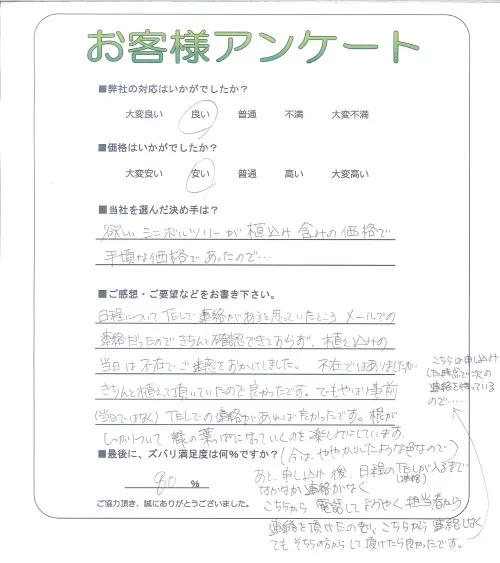 お客様アンケート
■弊社の対応はいかがでしたか?
大変良い 良い 普通 不満 大変不満
■価格はいかがでしたか?
大変安い 安い 普通 高い 大変高い
■当社を選んだ決め手は?
欲しいシンボルツリーが植込み含みの価格で
手頃な価格であったので…
■ご感想・ご要望などをお書き下さい。
日程についてTELで連絡があると思っていたところ メールでの
連絡だったので きちんと確認できておらず、植え込みの
当日は不在でご迷惑をおかけしました。 不在ではありましたが
きちんと植えて頂いていたので良かったです。でもやはり事前
(当日ではなく)TELでの連絡があれば良かったです。根が
しっかりついて 緑の葉っぱになっていくのを楽しみにしています。
(今は、ややかれたような色なので)
■最後に、ズバリ満足度は何%ですか?
80 %
ご協力頂き、誠にありがとうございました。
あと、申し込み後、日程のTELが入るまで
(連絡)
なかなか連絡がなく
こちらから 電話して ようやく 担当者から
連絡を頂けたのも、こちらから連絡しなく
ても そちらの方からして頂けたら良かったです。
こちらは申し込み
した時点で次の
連絡を待っている
ので……